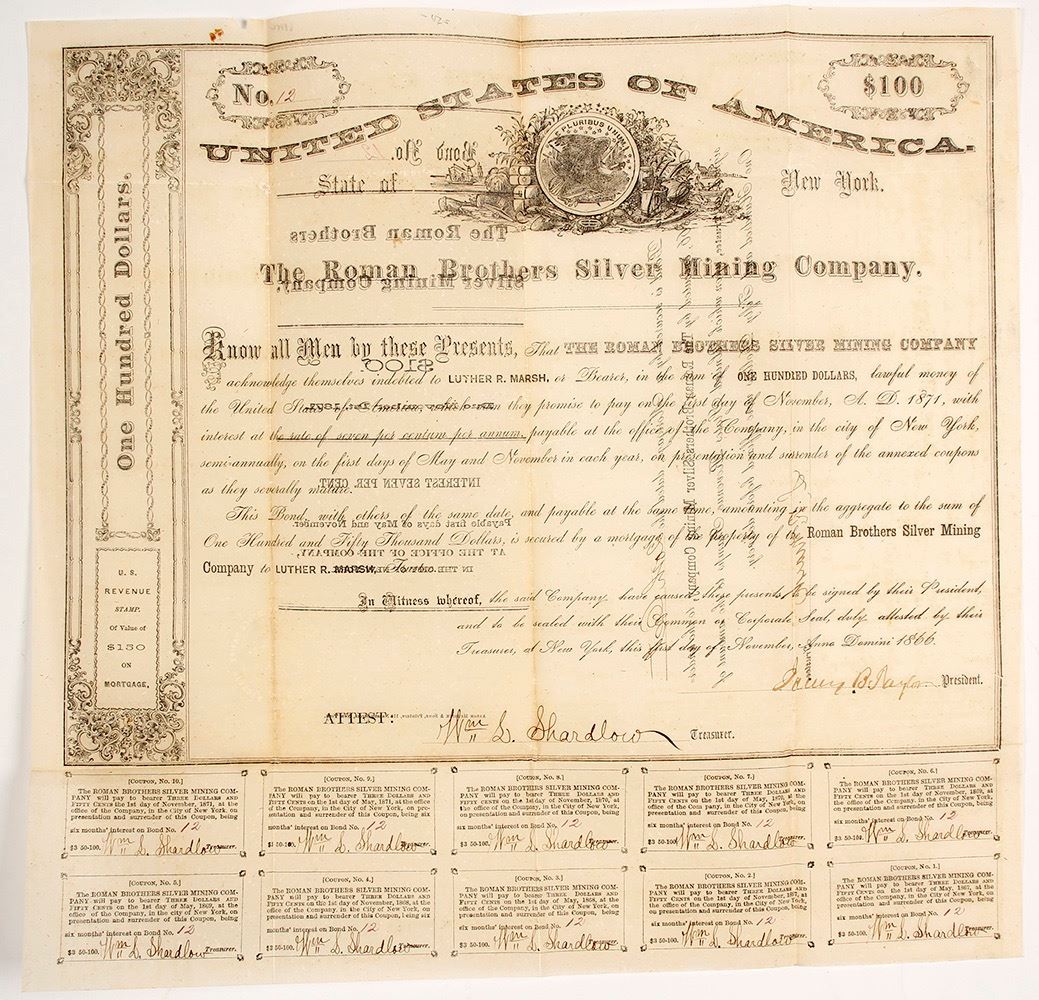 No. 12
$100
UNITED STATES OF AMERICA.
E PLURIBUS UNUM
Bond No. 12
State of New York.
The Roman Brothers
The Roman Brothers Silver Mining Company.
Silver Mining Company.
Know all Men by these Presents, That THE ROMAN BROTHERS SILVER MINING COMPANY
$100
acknowledge themselves indebted to LUTHER R. MARSH, or Bearer, in the sum of ONE HUNDRED DOLLARS, lawful money of
the United States of America, which sum they promise to pay on the first day of November, A. D. 1871, with
interest at the rate of seven per centum per annum, payable at the office of the Company, in the city of New York,
semi-annually, on the first days of May and November in each year, on presentation and surrender of the annexed coupons
as they severally mature.
INTEREST SEVEN PER CENT.
This Bond, with others of the same date, and payable at the same time, amounting in the aggregate to the sum of
Payable first days of May and November
One Hundred and Fifty Thousand Dollars, is secured by a mortgage of the property of the Roman Brothers Silver Mining
AT THE OFFICE OF THE COMPANY,
Company to LUTHER R. MARSH, Trustee.
In Witness whereof, the said Company have caused these presents to be signed by their President,
and to be sealed with their Common or Corporate Seal, duly attested by their
Treasurer, at New York, this first day of November, Anno Domini 1866.
President.
ATTEST:
Wm L. Shardlow Treasurer.
One Hundred Dollars.
U. S.
REVENUE
STAMP.
Of Value of
$150
ON
MORTGAGE.
[COUPON, No. 10.]
The ROMAN BROTHERS SILVER MINING COM-
PANY will pay to bearer THREE DOLLARS AND
FIFTY CENTS the 1st day of November, 1871, at the
office of the Company, in the City of New York, on
presentation and surrender of this Coupon, being
six months' interest on Bond No. 12
$3 50-100. Wm L. Shardlow Treasurer.
[COUPON, No. 9.]
The ROMAN BROTHERS SILVER MINING COM-
PANY will pay to bearer THREE DOLLARS AND
FIFTY CENTS on the 1st day of May, 1871, at the office
of the Company, in the City of New York, on pre-
sentation and surrender of this Coupon, being six
months' interest on Bond No. 12
$3 50-100. Wm L. Shardlow Treasurer.
[COUPON, No. 8.]
The ROMAN BROTHERS SILVER MINING COM-
PANY will pay to bearer THREE DOLLARS AND
FIFTY CENTS on the 1st day of November, 1870, at
the office of the Company, in the City of New York,
on presentation and surrender of this Coupon, being
six months' interest on Bond No. 12
$3 50-100. Wm L. Shardlow Treasurer.
[COUPON, No. 7.]
The ROMAN BROTHERS SILVER MINING COM-
PANY will pay to bearer THREE DOLLARS AND
FIFTY CENTS on the 1st day of May, 1870, at the
office of the Company, in the City of New York, on
presentation and surrender of this Coupon, being
six months' interest on Bond No. 12
$3 50-100. Wm L. Shardlow Treasurer.
[COUPON, No. 6.]
The ROMAN BROTHERS SILVER MINING COM-
PANY will pay to bearer THREE DOLLARS AND
FIFTY CENTS on the 1st day of November, 1869, at
the office of the Company, in the City of New York,
on presentation and surrender of this Coupon, being
six months' interest on Bond No. 12
$3 50-100. Wm L. Shardlow Treasurer.
[COUPON, No. 5.]
The ROMAN BROTHERS SILVER MINING COM-
PANY will pay to bearer THREE DOLLARS AND
FIFTY CENTS on the 1st day of May, 1869, at the
office of the Company, in the city of New York, on
presentation and surrender of this Coupon, being
six months' interest on Bond No. 12
$3 50-100. Wm L. Shardlow Treasurer.
[COUPON, No. 4.]
The ROMAN BROTHERS SILVER MINING COM-
PANY will pay to bearer THREE DOLLARS AND
FIFTY CENTS on the 1st day of November, 1868, at the
office of the Company, in the City of New York, on
presentation and surrender of this Coupon, being six
months' interest on Bond No. 12
$3 50-100. Wm L. Shardlow Treasurer.
[COUPON, No. 3.]
The ROMAN BROTHERS SILVER MINING COM-
PANY will pay to bearer THREE DOLLARS AND
FIFTY CENTS on the 1st day of May, 1868, at the
office of the Company, in the City of New York, on
presentation and surrender of this Coupon, being
six months' interest on Bond No. 12
$3 50-100. Wm L. Shardlow Treasurer.
[COUPON, No. 2.]
The ROMAN BROTHERS SILVER MINING COM-
PANY will pay to bearer THREE DOLLARS AND
FIFTY CENTS on the 1st day of November, 1867, at
the office of the Company, in the City of New York,
on presentation and surrender of this Coupon, being
six months' interest on Bond No. 12
$3 50-100. Wm L. Shardlow Treasurer.
[COUPON, No. 1.]
The ROMAN BROTHERS SILVER MINING COM-
PANY will pay to bearer THREE DOLLARS AND
FIFTY CENTS on the 1st day of May, 1867, at the
office of the Company, in the City of New York, on
presentation and surrender of this Coupon, being
six months' interest on Bond No. 12
$3 50-100. Wm L. Shardlow Treasurer.